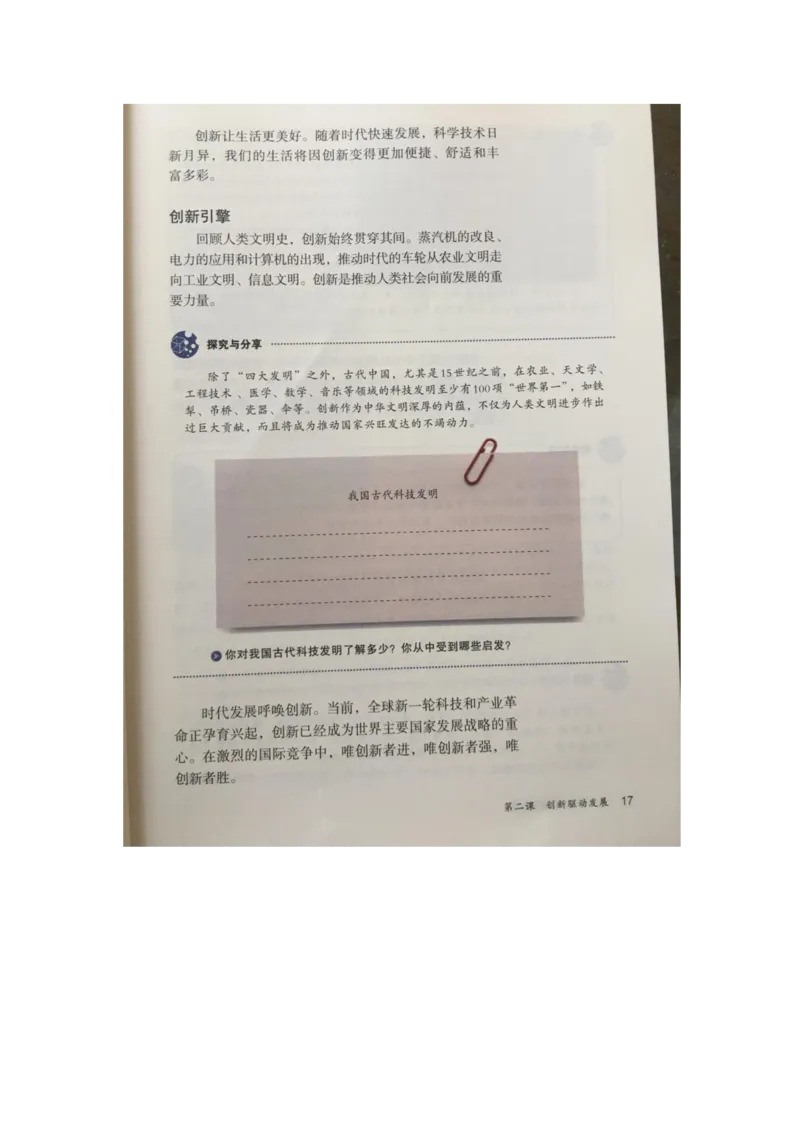 创新让生活更美好。随着时代快速发展，科学技术日
新月异，我们的生活将因创新变得更加便捷、舒适和丰
富多彩。
创新引擎
回顾人类文明史，创新始终贯穿其间。蒸汽机的改良、
电力的应用和计算机的出现，推动时代的车轮从农业文明走
向工业文明、信息文明。创新是推动人类社会向前发展的重
要力量。
探究与分享
除了“四大发明”之外，古代中国，尤其是15世纪之前，在农业、天文学、
工程技术、医学、数学、音乐等领域的科技发明至少有100项“世界第一”，如铁
犁、吊桥、瓷器、伞等。创新作为中华文明深厚的内蕴，不仅为人类文明进步作出
过巨大贡献，而且将成为推动国家兴旺发达的不竭动力。
我国古代科技发明
你对我国古代科技发明了解多少？你从中受到哪些启发？
时代发展呼唤创新。当前，全球新一轮科技和产业革
命正孕育兴起，创新已经成为世界主要国家发展战略的重
心。在激烈的国际竞争中，唯创新者进，唯创新者强，唯
创新者胜。
第二课 创新驱动发展 17